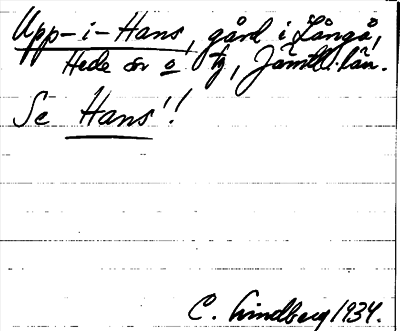 Upp-i-Hans, gård i Långå,
Hede sn o tg, Jämtl. län.
Se Hans!!
C. Lindberg 1934.